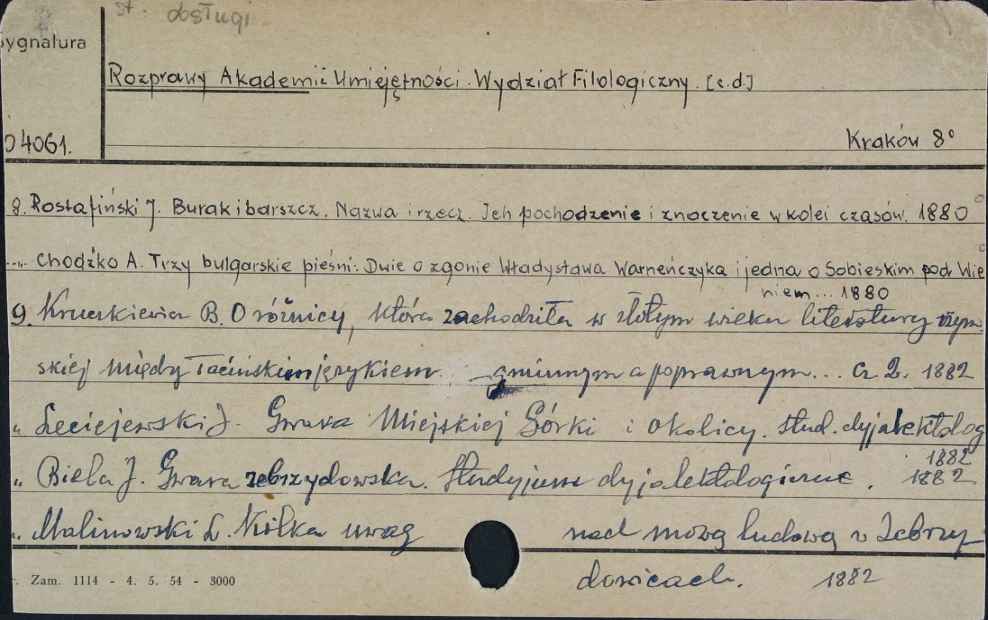 st. obsługi
Sygnatura
Rozprawy Akademii Umiejętności. Wydział Filologiczny. [c.d.]
04061.
Kraków 8°
8. Rostafiński J. Burak i barszcz. Nazwa i rzecz. Ich pochodzenie i znaczenie w kolei czasów. 1880
-„- Chodźko A. Trzy bulgarskie pieśni: Dwie o zgonie Władysława Warneńczyka i jedna o Sobieskim pod Wie
niem... 1880
9. Kruczkiewicz B. O różnicy, która zachodziła w złotym wieku literatury rzym
skiej między łacińskim językiem gminnym a poprawnym... Cz 2. 1882
„ Leciejewski J. Gwara Miejskiej Górki i okolicy. stud. dyjalektolog
1882
„ Biela J. Gwara zebrzydowska. Studyjum dyjalektologiczne. 1882
„ Malinowski L. Kilka uwag nad mową ludową w Zebrzy
dowicach. 1882
Zam. 1114 - 4. 5. 54 - 3000